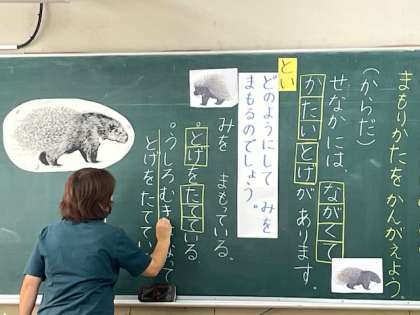 まもりかたを かんがえよう。
(からだ)
せなかには、ながくて
かたいとげが あります。
とい
どのようにして みを
まもるのでしょう。
みを まもっている。
。とげをたてている。
。うしろむきになって
とげをたててい